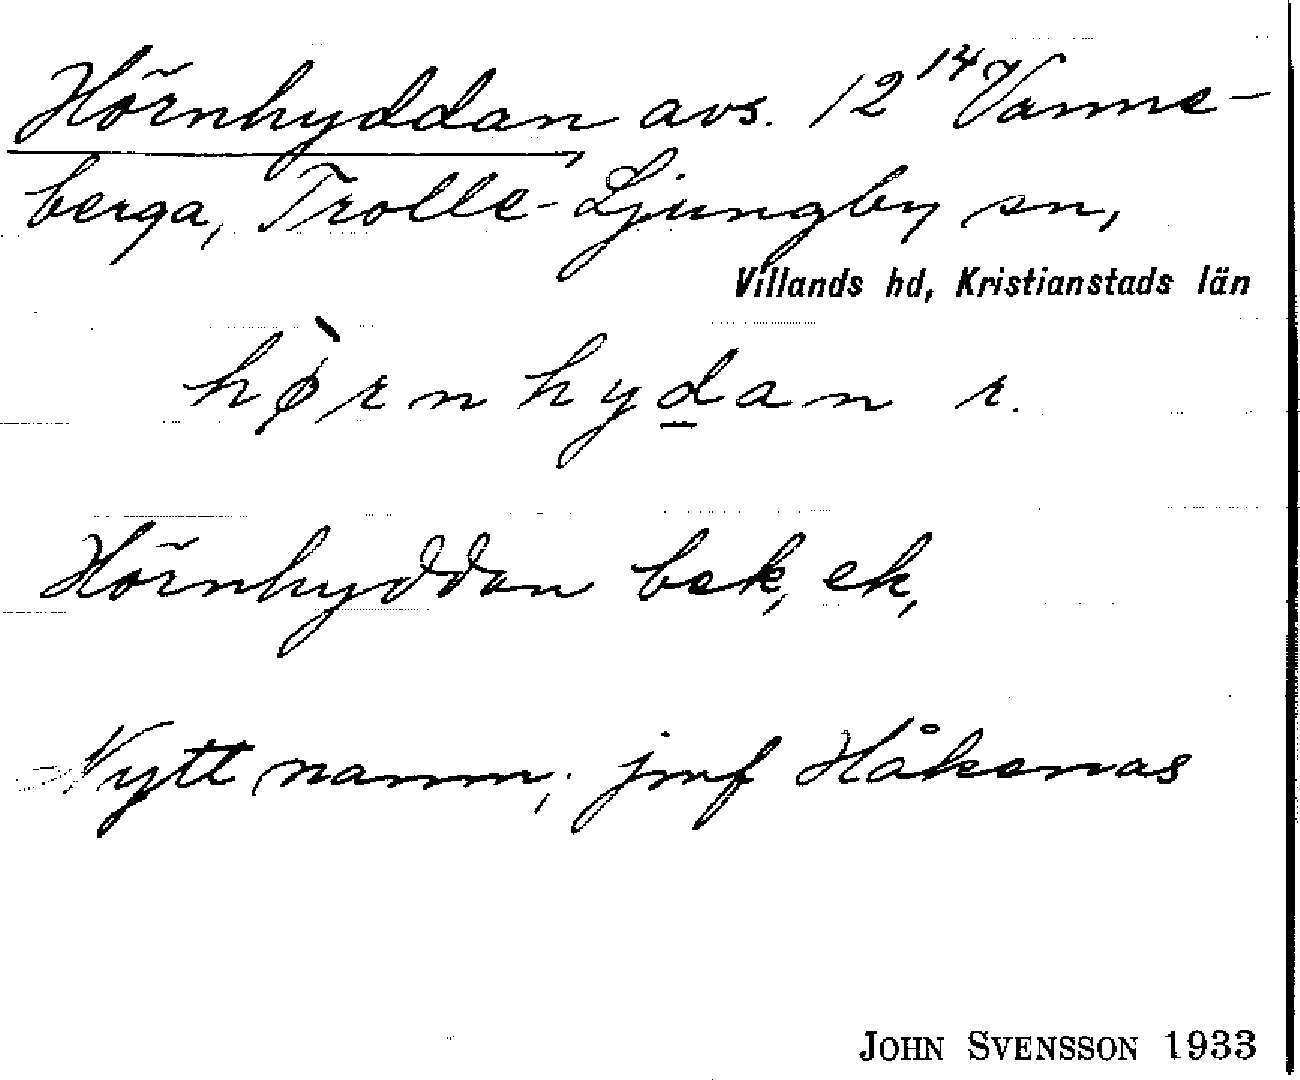 Hörnhyddan avs. 12¹⁴ Vanne-
berga, Trolle-Ljungby sn,
Villands hd, Kristianstads län
hø̀rnhyd̲an r.
Hörnhyddan bek, ek,
Nytt namn; jmf Håkenas
JOHN SVENSSON 1933